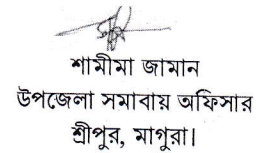 শামীমা জামান
উপজেলা সমাবায় অফিসার
শ্রীপুর, মাগুরা।